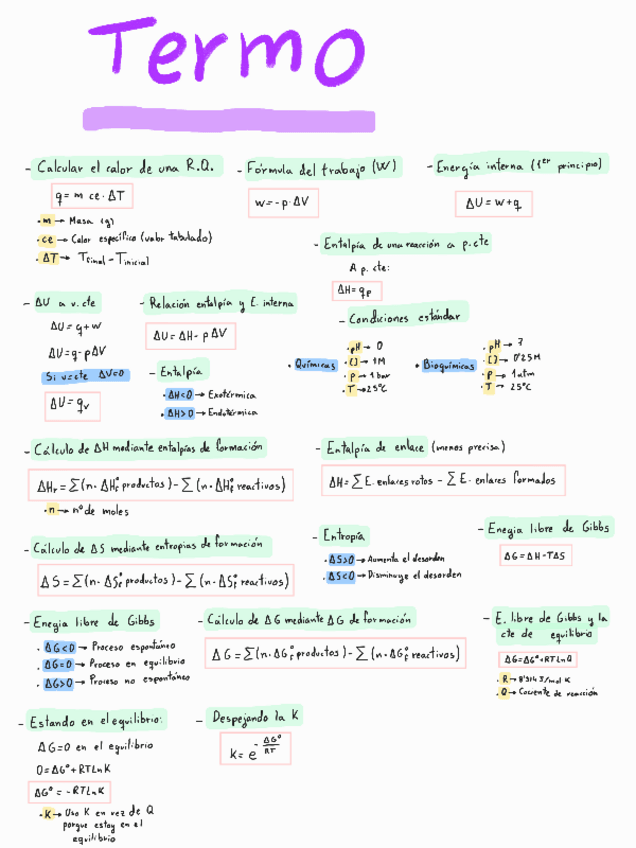 Termo
- Calcular el calor de una R.Q.
q = m ce · ΔT
· m → Masa (g)
· ce → Calor específico (valor tabulado)
· ΔT → Tfinal - Tinicial
- Fórmula del trabajo (W)
w = - p · ΔV
- Energía interna (1er principio)
ΔU = w + q
- Entalpía de una reacción a p.cte
A p. cte:
ΔH = qp
- ΔU a v.cte
ΔU = q + w
ΔU = q - p ΔV
Si v = cte ΔV=0
ΔU = qv
- Relación entalpía y E. interna
ΔU = ΔH - p ΔV
- Entalpía
· ΔH<0 → Exotérmica
· ΔH>0 → Endotérmica
- Condiciones estándar
· Químicas
· pH → 0
· [] → 1M
· P → 1 bar
· T → 25ºC
· Bioquímicas
· pH → 7
· [] → 0'25M
· P → 1 atm
· T → 25ºC
- Cálculo de ΔH mediante entalpías de formación
ΔHr = Σ(n · ΔHfº productos) - Σ (n · ΔHfº reactivos)
· n → nº de moles
- Entalpía de enlace (menos precisa)
ΔH = Σ E. enlaces rotos - Σ E. enlaces formados
- Cálculo de ΔS mediante entropias de formación
ΔS = Σ(n · ΔSfº productos) - Σ (n · ΔSfº reactivos)
- Entropía
· ΔS>0 → Aumenta el desorden
· ΔS<0 → Disminuye el desorden
- Enegia libre de Gibbs
ΔG = ΔH - TΔS
- Enegia libre de Gibbs
· ΔG<0 → Proceso espontáneo
· ΔG=0 → Proceso en equilibrio
· ΔG>0 → Proceso no espontáneo
- Cálculo de ΔG mediante ΔG de formación
ΔG = Σ(n · ΔGfº productos) - Σ (n · ΔGfº reactivos)
- E. libre de Gibbs y la
cte de equilibrio
ΔG = ΔGº + RT Ln Q
· R → 8'314 J/mol K
· Q → Cociente de reacción
- Estando en el equilibrio:
ΔG = 0 en el equilibrio
0 = ΔGº + RT Ln K
ΔGº = - RT Ln K
· K → Uso K en vez de Q
porque estoy en el
equilibrio
- Despejando la K
K = e^(- ΔGº/RT)